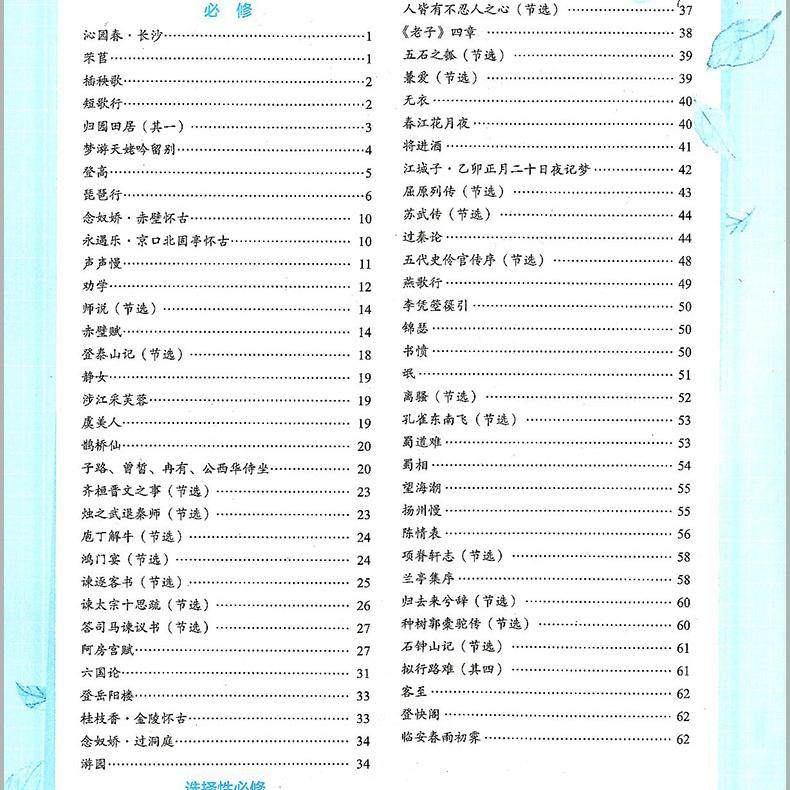 必 修
沁园春·长沙 1
芣苢 1
插秧歌 2
短歌行 2
归园田居（其一） 3
梦游天姥吟留别 4
登高 5
琵琶行 6
念奴娇·赤壁怀古 10
永遇乐·京口北固亭怀古 10
声声慢 11
劝学 12
师说（节选） 14
赤壁赋 14
登泰山记（节选） 18
静女 19
涉江采芙蓉 19
虞美人 19
鹊桥仙 20
子路、曾皙、冉有、公西华侍坐 20
齐桓晋文之事（节选） 23
烛之武退秦师（节选） 23
庖丁解牛（节选） 24
鸿门宴（节选） 24
谏逐客书（节选） 25
谏太宗十思疏（节选） 26
答司马谏议书（节选） 27
阿房宫赋 27
六国论 31
登岳阳楼 33
桂枝香·金陵怀古 33
念奴娇·过洞庭 34
游园 34
选择性必修
人皆有不忍人之心（节选） 37
《老子》四章 38
五石之瓠（节选） 39
兼爱（节选） 39
无衣 40
春江花月夜 40
将进酒 41
江城子·乙卯正月二十日夜记梦 42
屈原列传（节选） 43
苏武传（节选） 44
过秦论 44
五代史伶官传序（节选） 48
燕歌行 49
李凭箜篌引 50
锦瑟 50
书愤 50
氓 51
离骚（节选） 52
孔雀东南飞（节选） 53
蜀道难 53
蜀相 54
望海潮 55
扬州慢 55
陈情表 56
项脊轩志（节选） 58
兰亭集序 58
归去来兮辞（节选） 60
种树郭橐驼传（节选） 60
石钟山记（节选） 61
拟行路难（其四） 61
客至 62
登快阁 62
临安春雨初霁 62